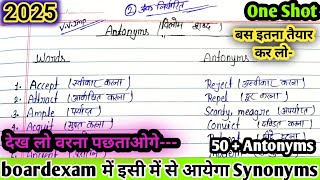 2025
② अंक निर्धारित
One Shot
V.V.Imp
Antonyms (विलोम शब्द)
बस इतना तैयार
कर लो-
Words
Antonyms
1. Accept (स्वीकार करना)
Reject (अस्वीकार करना)
2. Attract (आकर्षित करना)
Repel (दूर करना)
3. Ample (पर्याप्त)
Scanty, meagre (अपर्याप्त)
4. Acquit (मुक्त करना)
Convict
देख लो वरना पछताओगे---
50+ Antonyms
boardexam में इसी में से आयेगा Synonyms